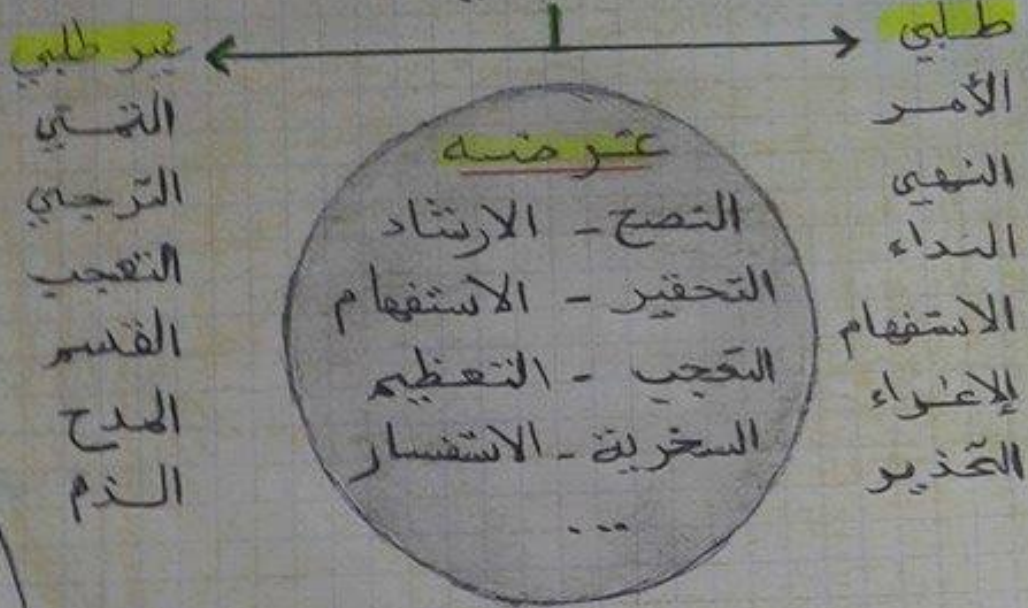 طلبي
الأمر
النهي
النداء
الاستفهام
الإغراء
التحذير
غرضه
النصح - الارشاد
التحقير - الاستفهام
التعجب - التعظيم
السخرية - الاستفسار
...
غير طلبي
التمني
الترجي
التعجب
القسم
المدح
الذم